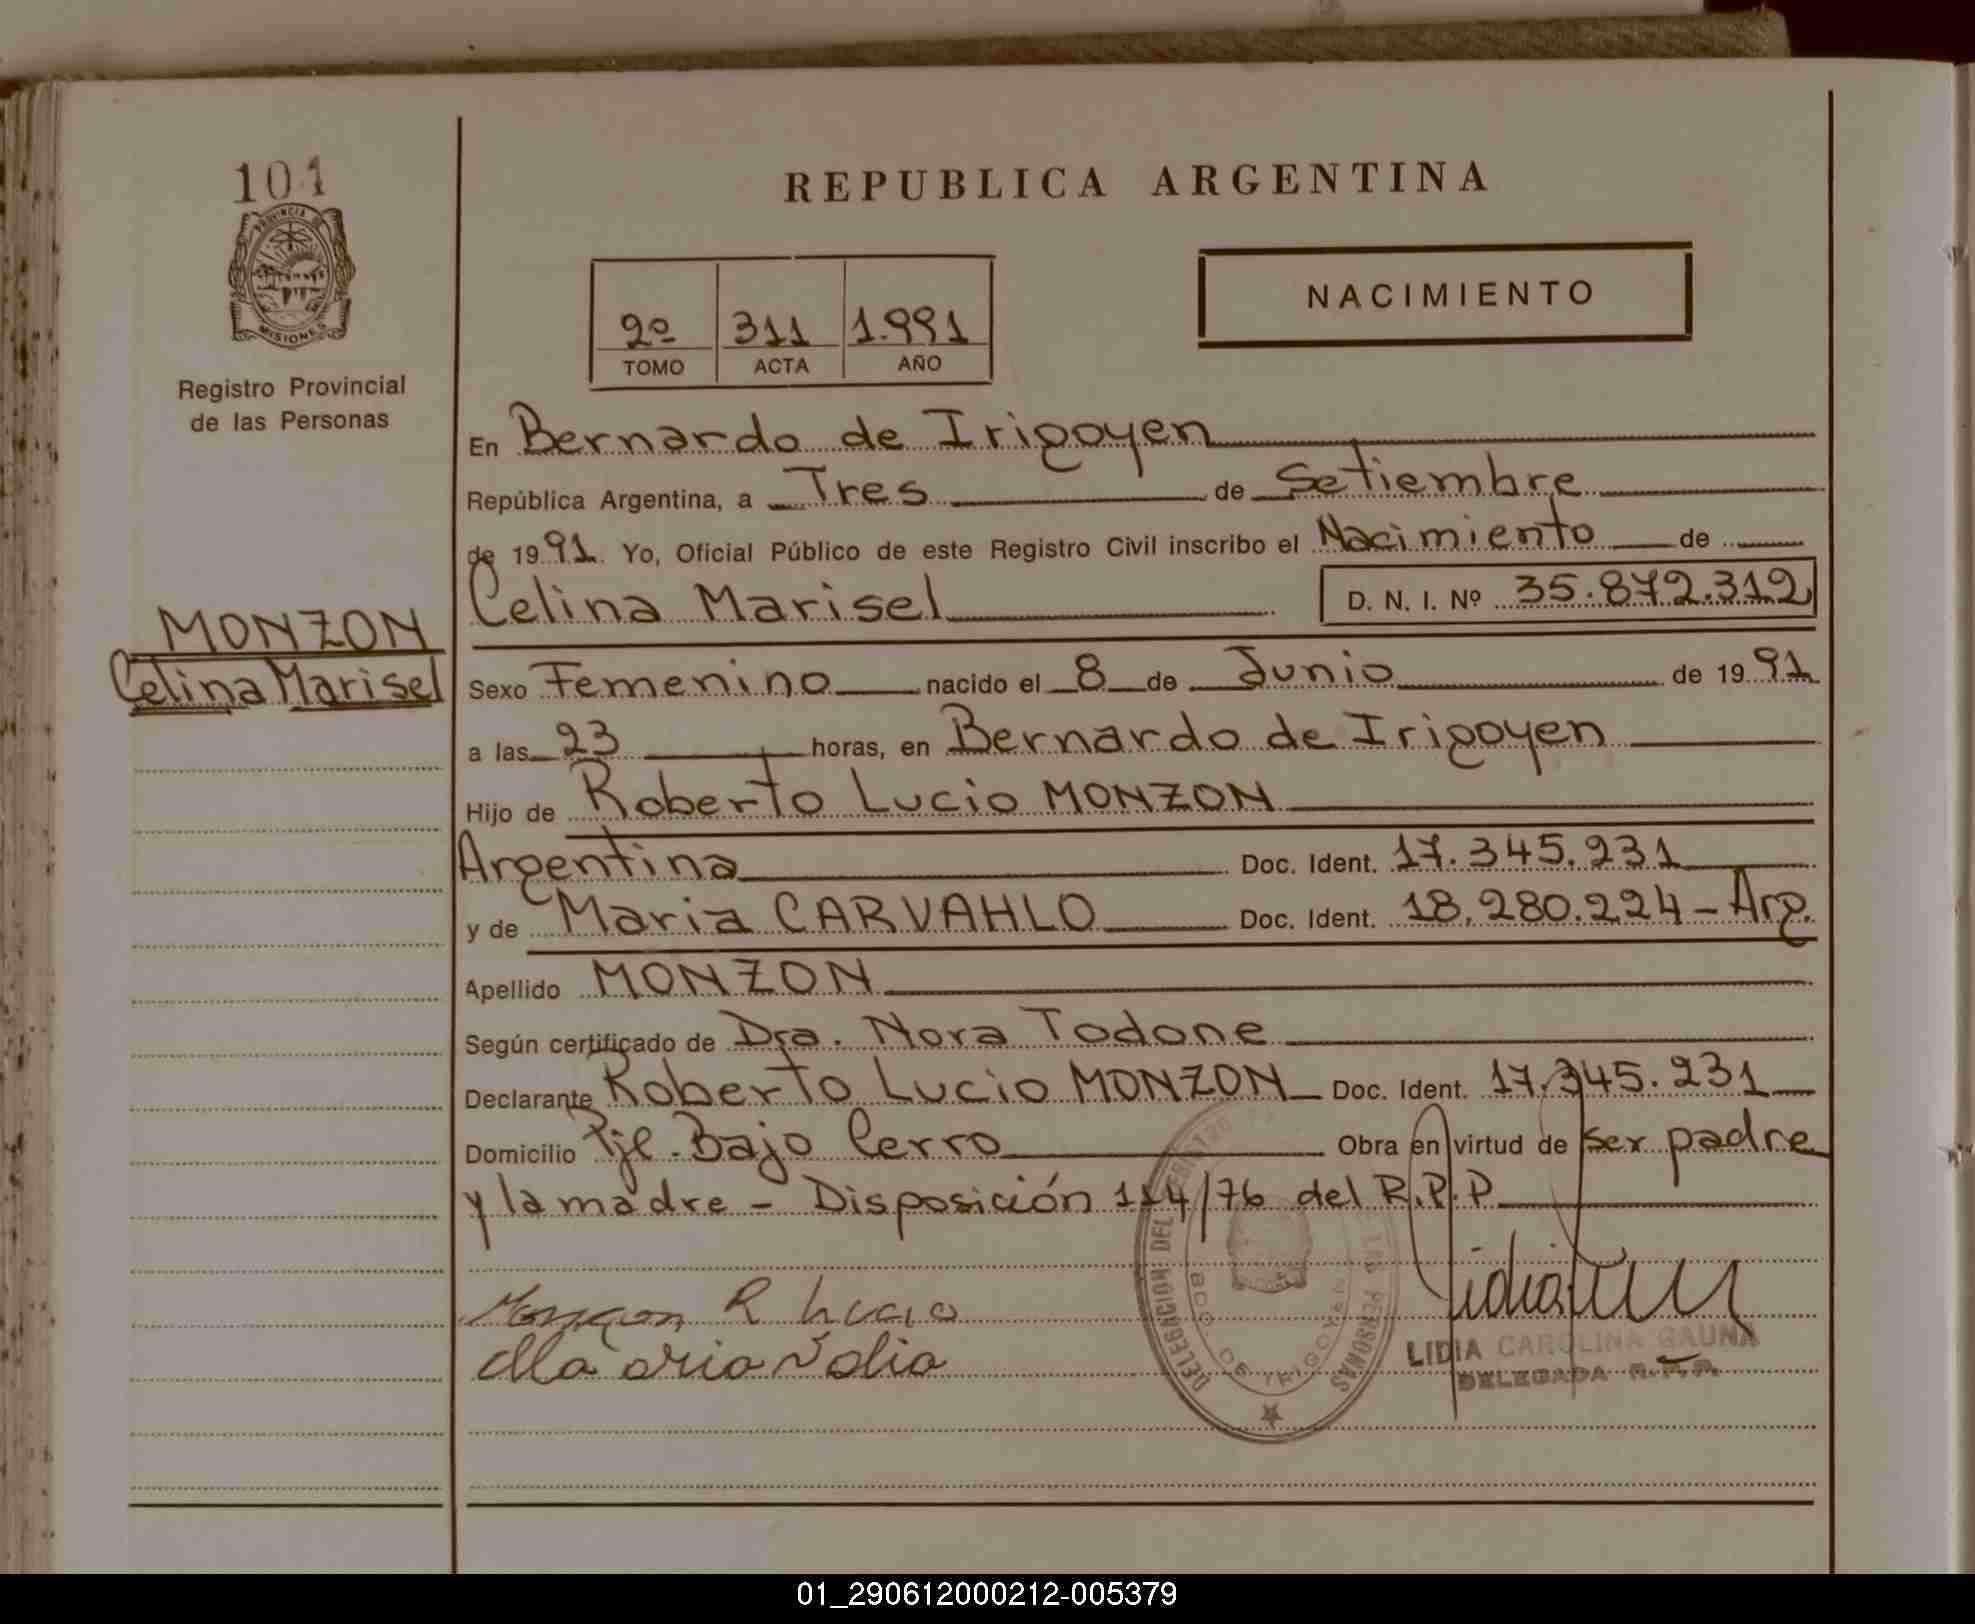 101
PROVINCIA DE
MISIONES
Registro Provincial
de las Personas
MONZON
Celina Marisel
REPUBLICA ARGENTINA
2º 311 1.991
TOMO ACTA AÑO
NACIMIENTO
En Bernardo de Irigoyen
República Argentina, a Tres de Setiembre
de 1991. Yo, Oficial Público de este Registro Civil inscribo el Nacimiento de
Celina Marisel D. N. I. Nº 35.872.312
Sexo Femenino nacido el 8 de Junio de 1991
a las 23 horas, en Bernardo de Irigoyen
Hijo de Roberto Lucio MONZON
Argentina Doc. Ident. 17.345.231
y de Maria CARVAHLO Doc. Ident. 18.280.224 - Arg.
Apellido MONZON
Según certificado de Dra. Nora Todone
Declarante Roberto Lucio MONZON Doc. Ident. 17.345.231
Domicilio Pje. Bajo Cerro Obra en virtud de ser padre
y la madre - Disposición 114/76 del R.P.P
R Lucio
DELEGACION DEL REGISTRO
LAS PERSONAS
BDO. DE IRIGOYEN
LIDIA CAROLINA GAUNA
DELEGADA R.P.P.
01_290612000212-005379